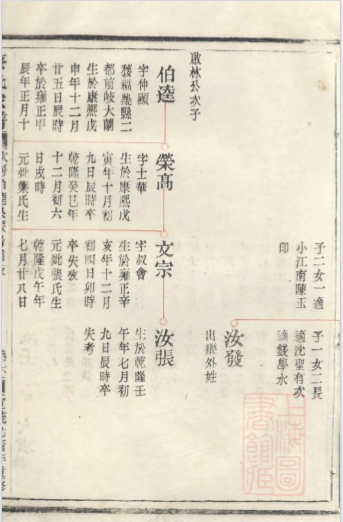 啟林公次子
伯逵
字伸顯
藝福鼎縣二
都前岐大蘭
生於康熙戊
申年十二月
廿五日辰時
卒於雍正甲
辰年正月十
榮高
字士華
生於康熙戊
寅年十月初
九日辰時卒
乾隆癸巳年
十二月初六
日戌時
元妣葉氏生
文宗
字叔會
生於雍正辛
亥年十二月
初四日卯時
卒失攷
元妣張氏生
乾隆戊午年
七月廿八日
子二女一適
小江南陳玉
印
汝張
生於乾隆壬
午年七月初
九日辰時卒
失考
汝發
出繼外姓
子一女二長
適沈聖有次
適錢學水
上海圖
書館藏